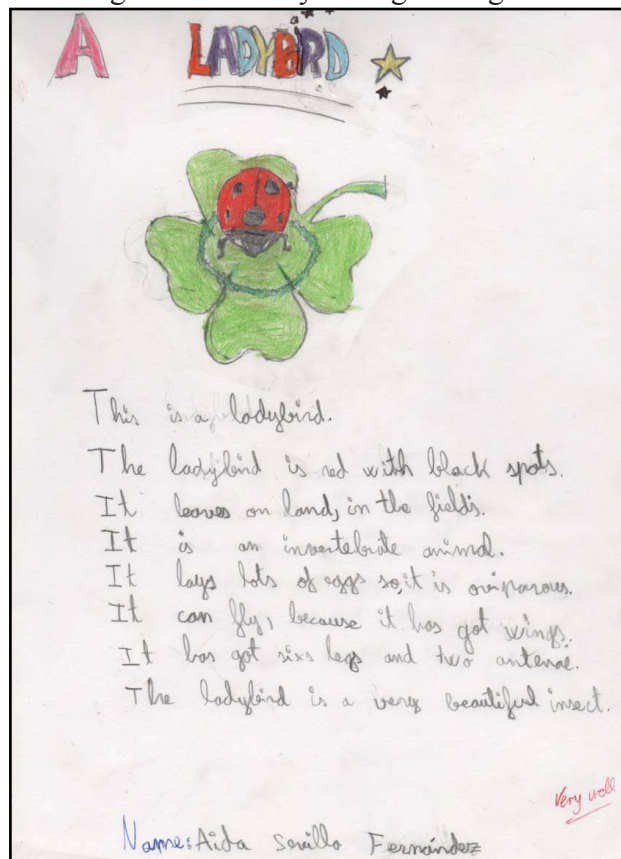 A LADYBIRD
This is a ladybird.
The ladybird is red with black spots.
It leaves on land, in the fields.
It is an invertebrate animal.
It lays lots of eggs so, it is oviparous.
It can fly, because it has got wings.
It has got sixs legs and two antenae.
The ladybird is a very beautiful insect.
Very well
Name: Aida Sevillo Fernández